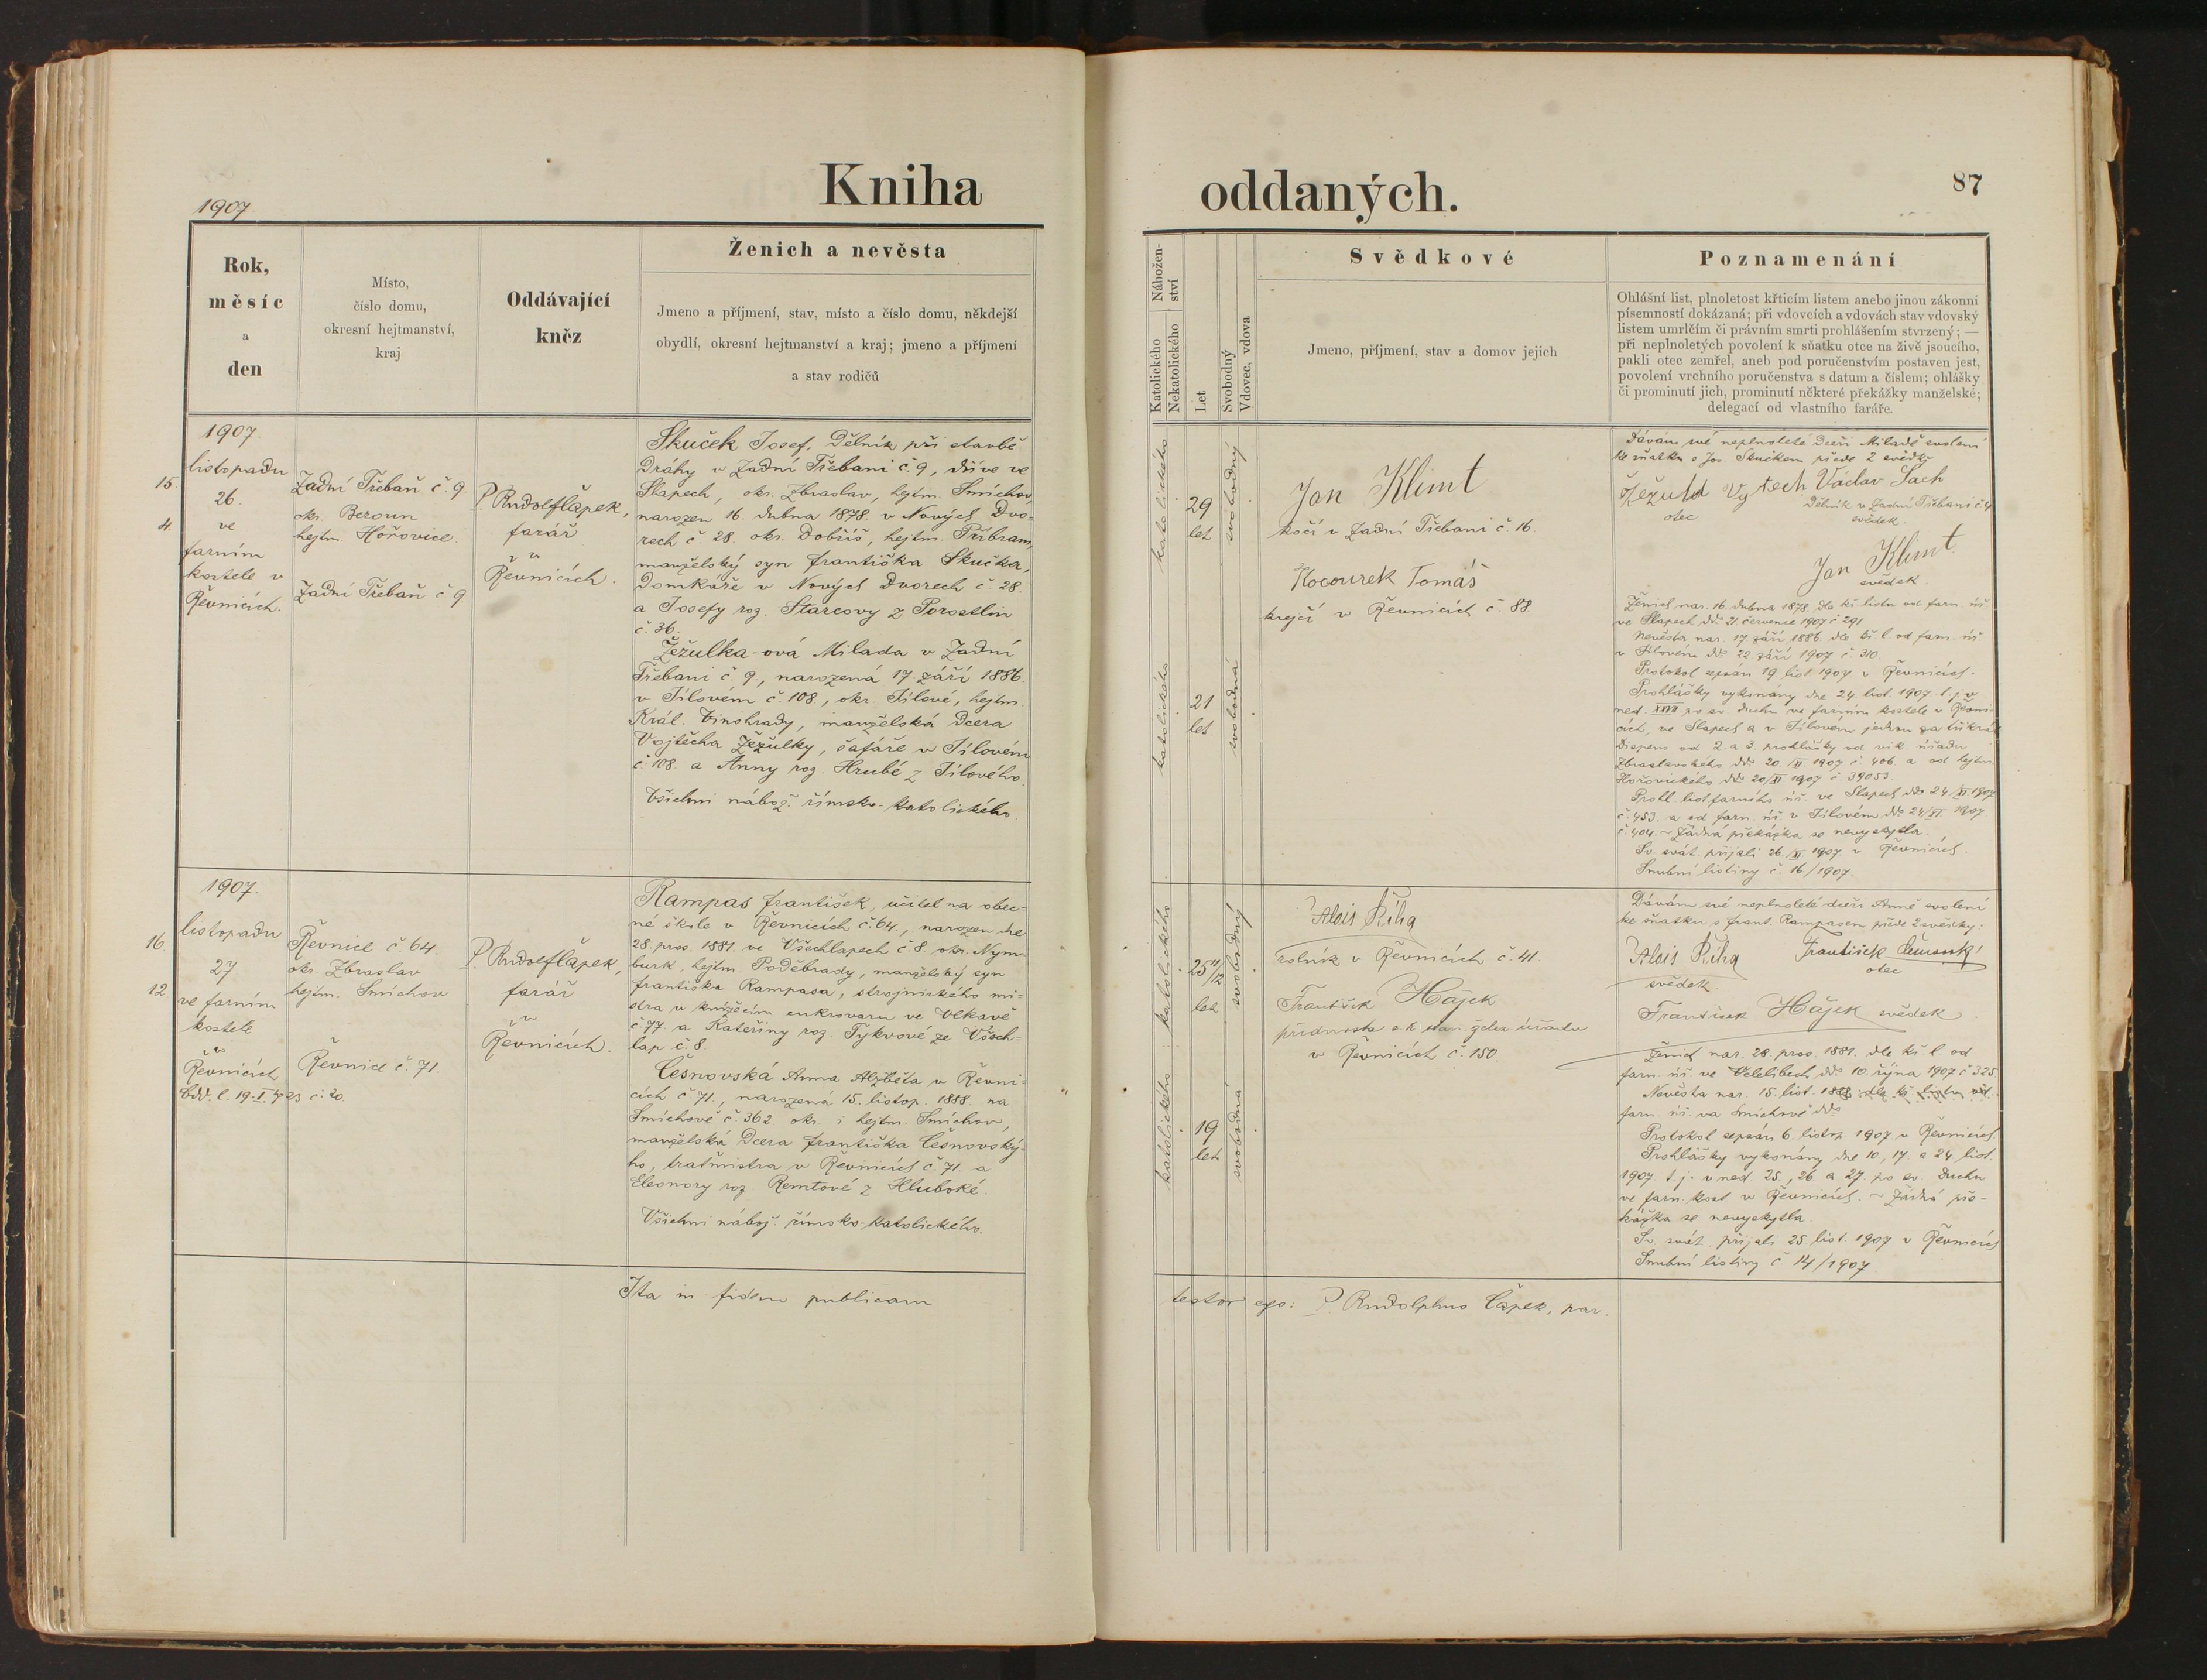 Kniha
oddaných.
87
1907.
Rok,
měsíc
a
den
Místo,
číslo domu,
okresní hejtmanství,
kraj
Oddávající
kněz
Ženich a nevěsta
Jmeno a příjmení, stav, místo a číslo domu, někdejší
obydlí, okresní hejtmanství a kraj; jmeno a příjmení
a stav rodičů
Nábožen-
ství
Katolického
Nekatolického
Let
Svobodný
Vdovec, vdova
Svědkové
Jmeno, příjmení, stav a domov jejich
Poznamenání
Ohlášní list, plnoletost křticím listem anebo jinou zákonní
písemností dokázaná; při vdovcích a vdovách stav vdovský
listem umrlčím či právním smrti prohlášením stvrzený; —
při neplnoletých povolení k sňatku otce na živě jsoucího,
pakli otec zemřel, aneb pod poručenstvím postaven jest,
povolení vrchního poručenstva s datum a číslem; ohlášky
či prominutí jich, prominutí některé překážky manželské;
delegací od vlastního faráře.
15.
4.
1907.
listopadu
26.
ve
farním
kostele v
Řevnicích.
Zadní Třebaň č. 9
okr. Beroun
hejtm. Hořovice.
Zadní Třebaň č 9
P. Rudolf Čapek,
farář
v
Řevnicích.
Skuček Josef, dělník při stavbě
dráhy v Zadní Třebani č. 9, dříve ve
Slapech, okr. Zbraslav, hejtm. Smíchov
narozen 16. dubna 1878. v Nových Dvo-
rech č 28. okr. Dobříš, hejtm. Příbram,
manželský syn Františka Skučka,
domkáře v Nových Dvorech č 28.
a Josefy roz. Starcovy z Porostlin
č. 36.
Žežulka-ová Milada v Zadní
Třebani č. 9, narozená 17 září 1886.
v Jílovém č. 108, okr. Jílové, hejtm.
Král. Vinohrady, manželská dcera
Vojtěcha Žežulky, šafáře v Jílovém
č. 108. a Anny roz. Hrubé z Jílového.
Všichni nábož. římsko-katolického.
katolického
29
let
svobodný
katolického
21
let
svobodná
Jan Klimt
kočí v Zadní Třebani č. 16.
Kocourek Tomáš
krejčí v Řevnicích č. 88.
Dávám své neplnoleté dceři Miladě svolení
ke sňatku s Jos. Skučkem přede 2 svědky
Václav Sach
otec
dělník v Zadní Třebani č. 4
svědek.
Jan Klimt
svědek.
Ženich nar. 16. dubna 1878. dle kř. listu od farn. úř.
ve Slapech ddo 21. července 1907 č 291
Nevěsta nar. 17 září 1886. dle kř. l. od farn. úř.
v Jílovém ddo 22. září 1907 č. 310.
Protokol sepsán 19. list. 1907. v Řevnicích.
Prohlášky vykonány dne 24. list. 1907. t. j. v
ned. XXVII po sv. Duchu ve farním kostele v Řevni-
cích, ve Slapech a v Jílovém jednou za třikrát
Dispens od 2. a 3. prohlášky od vik. úřadu
Zbraslavského ddo 20./XI 1907 č. 406. a od hejtm.
Hořovického ddo 20/XI 1907 č 39053.
Prohl. list farního úř. ve Slapech ddo 24/XI. 1907
č. 453. a od farn. úř. v Jílovém ddo 24/XI. 1907.
č. 404. ~ Žádná překážka se nevyskytla.
Sv. svát. přijali 26/XI. 1907. v Řevnicích.
Snubní listiny č. 16/1907.
16.
12.
1907.
listopadu
27
ve farním
kostele
v
Řevnicích
Odd. l. 19. I. 1923 č. 20.
Řevnice č. 64.
okr. Zbraslav
hejtm. Smíchov
Řevnice č. 71.
P. Rudolf Čapek,
farář
v
Řevnicích.
Rampas František, učitel na obec-
né škole v Řevnicích č. 64., narozen dne
28. pros. 1881. ve Všechlapech č. 8. okr. Nym-
burk, hejtm. Poděbrady, manželský syn
Františka Rampasa, strojnického mi-
stra v knížecím cukrovaru ve Vlkavě
č. 77. a Kateřiny roz. Tykvové ze Všech-
lap č. 8.
Česnovská Anna Alžběta v Řevni-
cích č. 71., narozená 15. listop. 1888. na
Smíchově č. 362. okr. i hejtm. Smíchov,
manželská dcera Františka Česnovské-
ho, traťmistra v Řevnicích č. 71. a
Eleonory roz. Remtové z Hluboké.
Všichni nábož. římsko-katolického.
katolického
25 11/12
let
svobodný
katolického
19
let
svobodná
Alois Říha
rolník v Řevnicích č. 41.
František Hájek
v Řevnicích č. 150.
Dávám své neplnoleté dceři Anně svolení
ke sňatku s Frant. Rampasem přede 2 svědky.
Alois Říha
svědek
František
otec
František Hájek svědek
Ženich nar. 28. pros. 1881. dle kř. l. od
farn. úř. ve Velelibech ddo 10. října 1907 č 325
Nevěsta nar. 15. list. 1888 dle kř. listu od
farn. úř. na Smíchově ddo
Protokol sepsán 6. listop. 1907 v Řevnicích
Prohlášky vykonány dne 10., 17. a 24. list.
1907 t. j. v ned. 25., 26 a 27. po sv. Duchu
ve farn. kost. v Řevnicích. ~ Žádná pře-
kážka se nevyskytla.
Sv. svát. přijali 25 list. 1907 v Řevnicích
Snubní listiny č 14/1907
Ita in fidem publicam
testor ego: P. Rudolphus Čapek, par.